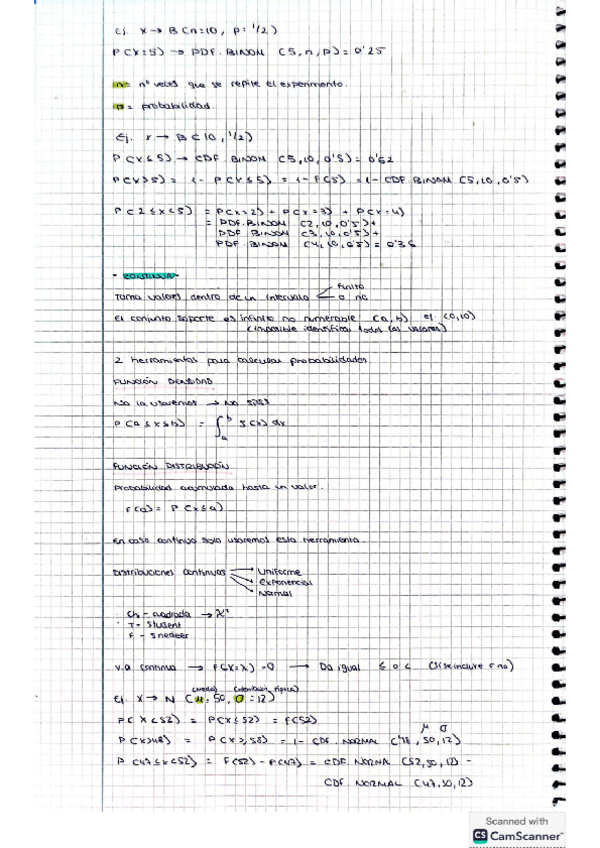 Ej. X → B (n=10, p=1/2)
P(X=5) → PDF. BINOM (5, n, p) = 0'25
n = nº veces que se repite el experimento.
p = probabilidad.
Ej. X → B (10, 1/2)
P(X≤5) → CDF. BINOM (5, 10, 0'5) = 0'62
P(X>5) = 1 - P(X≤5) = 1 - F(5) = 1 - CDF BINOM (5, 10, 0'5)
P(2≤X<5) = P(X=2) + P(X=3) + P(X=4)
= PDF. BINOM (2, 10, 0'5) +
PDF BINOM (3, 10, 0'5) +
PDF. BINOM (4, 10, 0'5) = 0'36
- CONTINUA -
Toma valores dentro de un intervalo finito
o no
El conjunto soporte es infinito no numerable (a, b) ej. (0, 10)
(imposible identificar todos los valores)
2 herramientas para calcular probabilidades.
FUNCIÓN DENSIDAD
No la usaremos → No SPSS
P(a≤X≤b) = ∫ₐᵇ f(x) dx
FUNCIÓN DISTRIBUCIÓN
Probabilidad acumulada hasta un valor.
F(a) = P(X≤a)
En caso continuo solo usaremos esta herramienta.
Distribuciones continuas → Uniforme
→ Exponencial
→ Normal
· Chi-cuadrada → X²
· T-Student
· F-Snedecor
v.a continua → P(X=x)=0 → Da igual ≤ o < (si se incluye o no)
(media) (desviación típica)
Ej. X → N (μ=50, σ=12)
P(X<52) = P(X≤52) = F(52)
μ σ
P(X>48) = P(X≥58) = 1 - CDF. NORMAL (48, 50, 12)
P(47≤X<52) = F(52) - F(47) = CDF. NORMA (52, 50, 12) -
CDF. NORMAL (47, 50, 12)
Scanned with
CS CamScanner